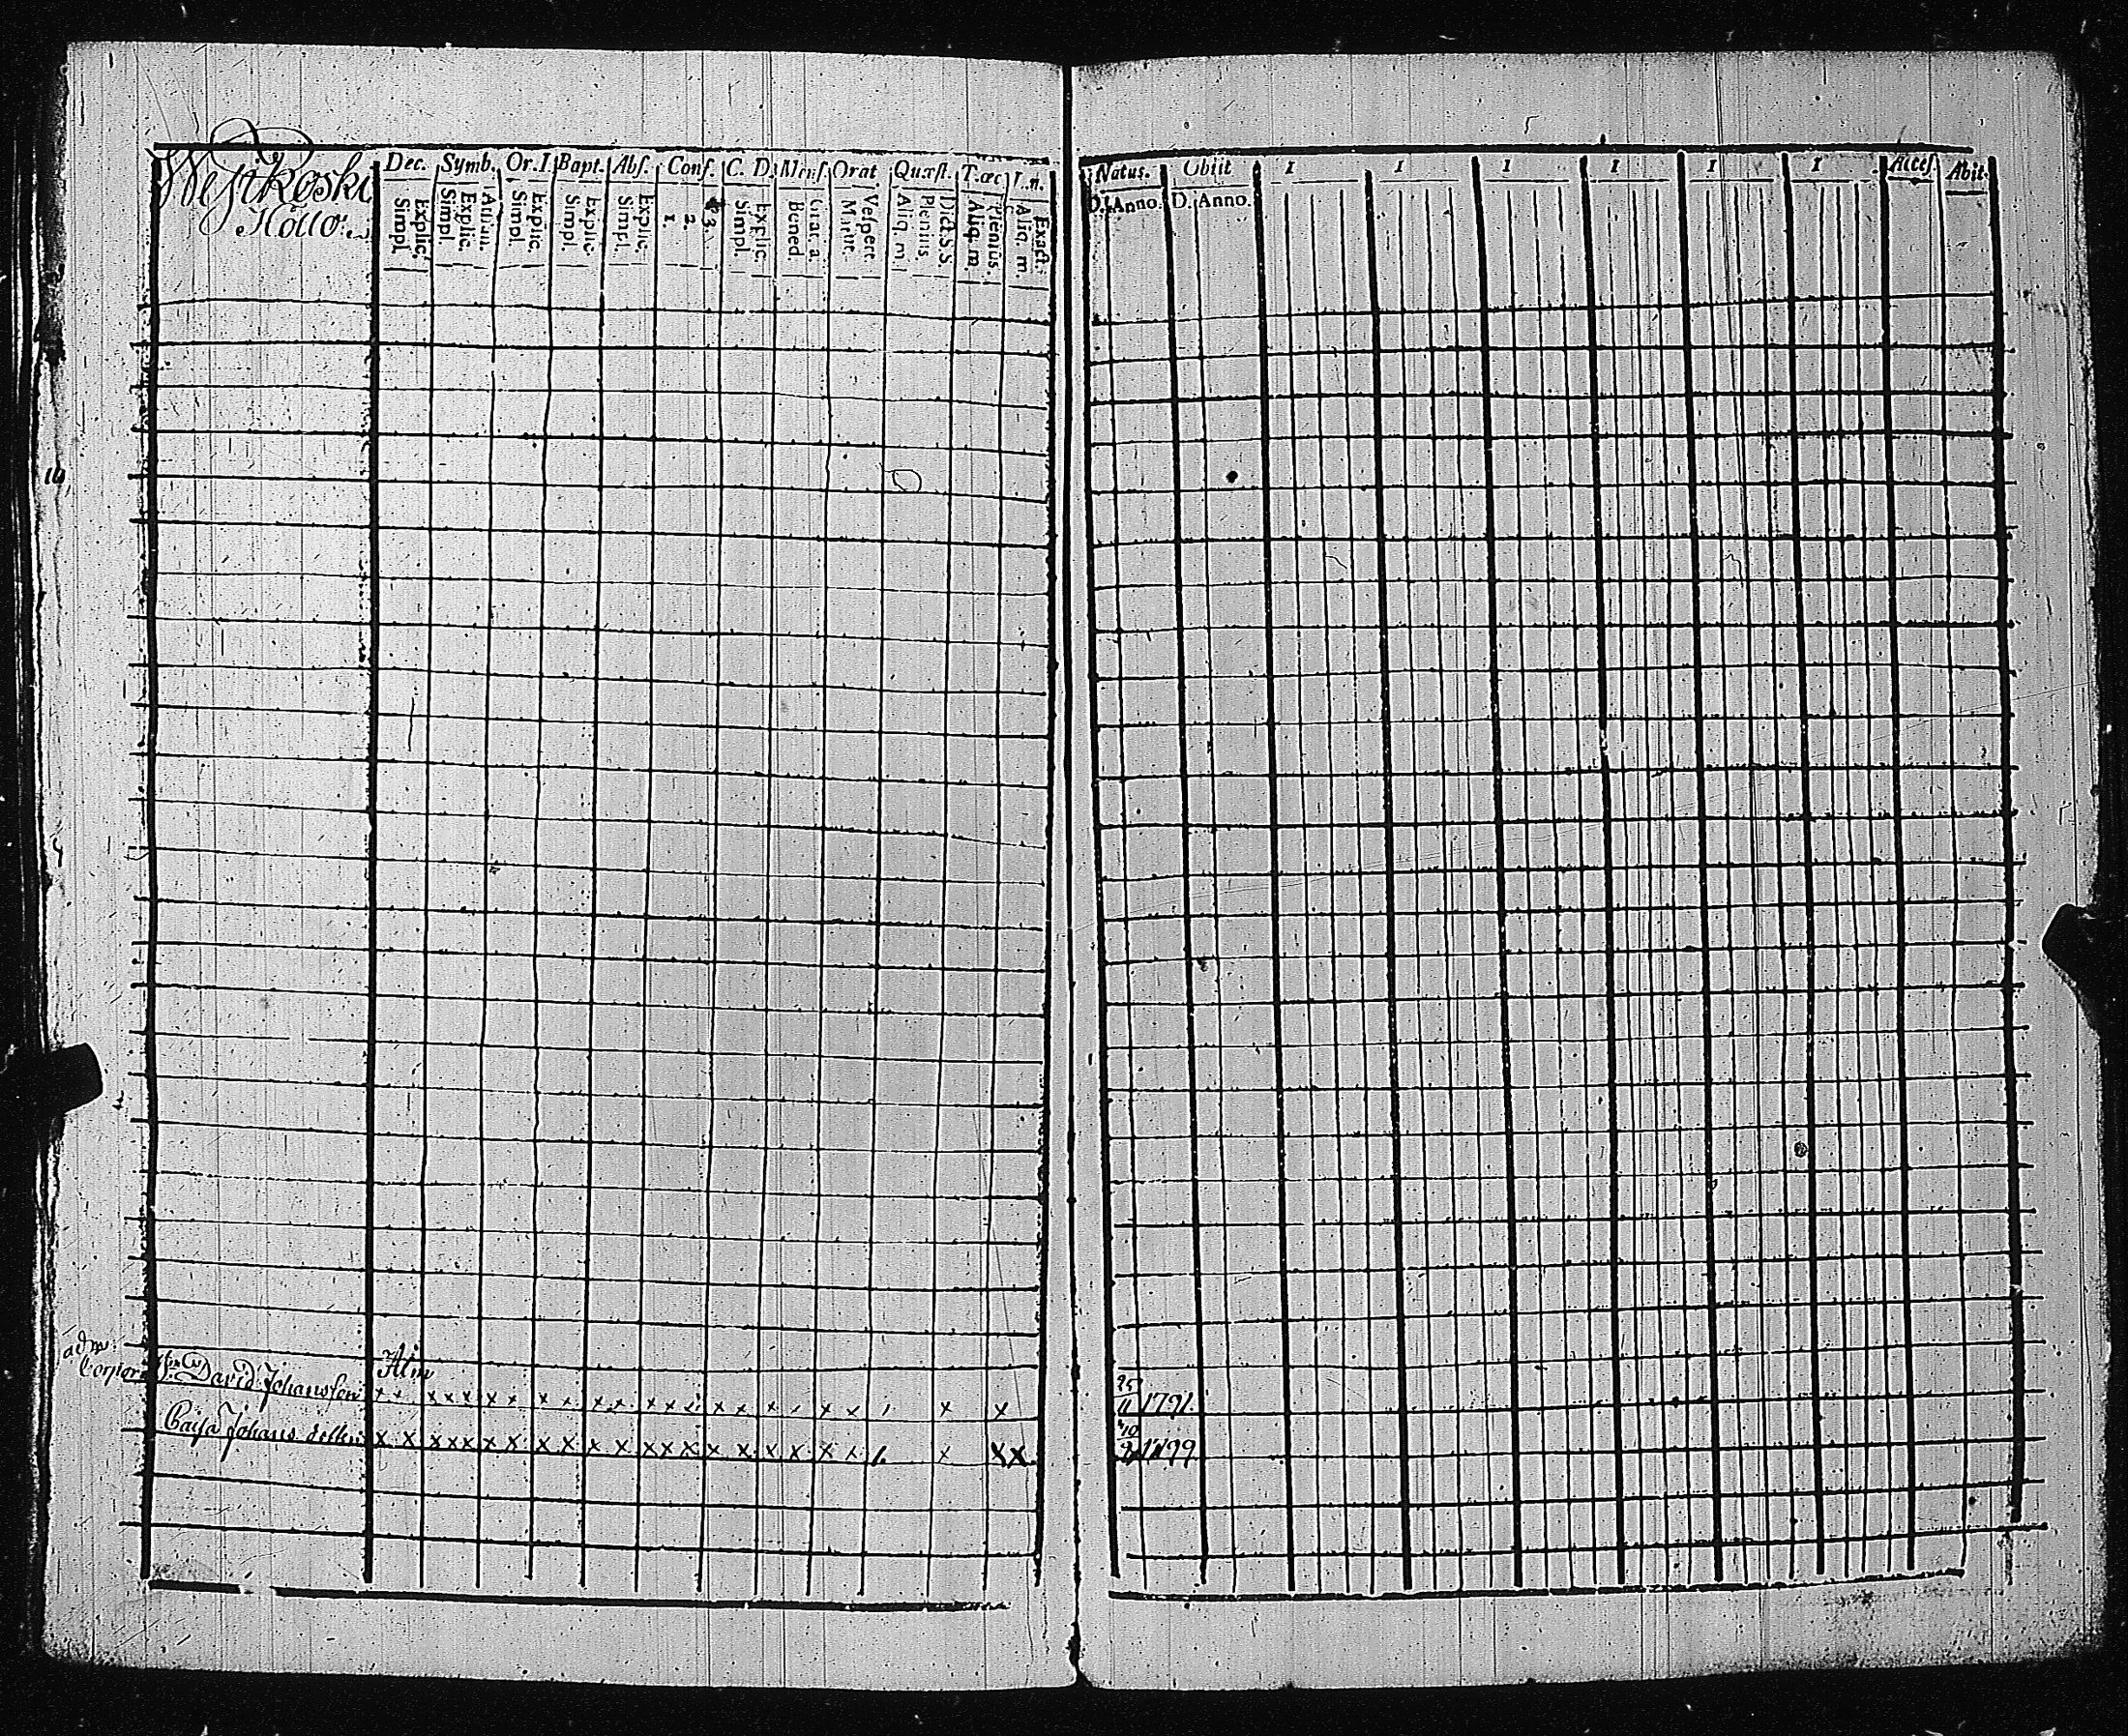 Westkoski
Hollo:
Dec. Symb. Or. I. Bapt. Abſ. Conf. C. D. Menſ. Orat Quæſt. T. œc I. n.
Explic. Simpl. Athan. Explic. Simpl. Explic. Simpl. Explic. Simpl. Explic. Simpl. 3. 2. 1. Explic. Simpl. Grat. a. Bened. Veſpert. Matut. Dict. S. S. Plenius Aliq. m. Plenius. Aliq. m. Exact. Aliq. m.
Natus. Obiit 1 1 1 1 1 1 Acceſ. Abit.
D. Anno. D. Anno.
adw:
David Johansson Alm
25/11 1791.
Caisa Johans 1799